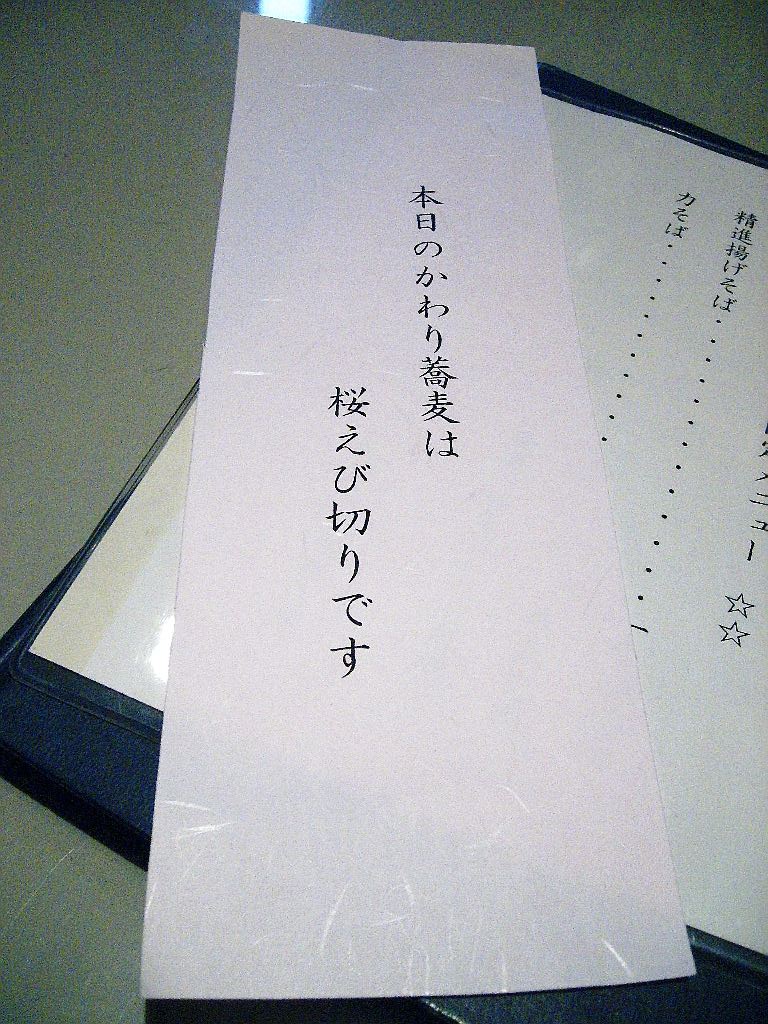 本日のかわり蕎麦は
桜えび切りです
メニュー ☆☆
精進揚げそば・・・・・・・・・
力そば・・・・・・